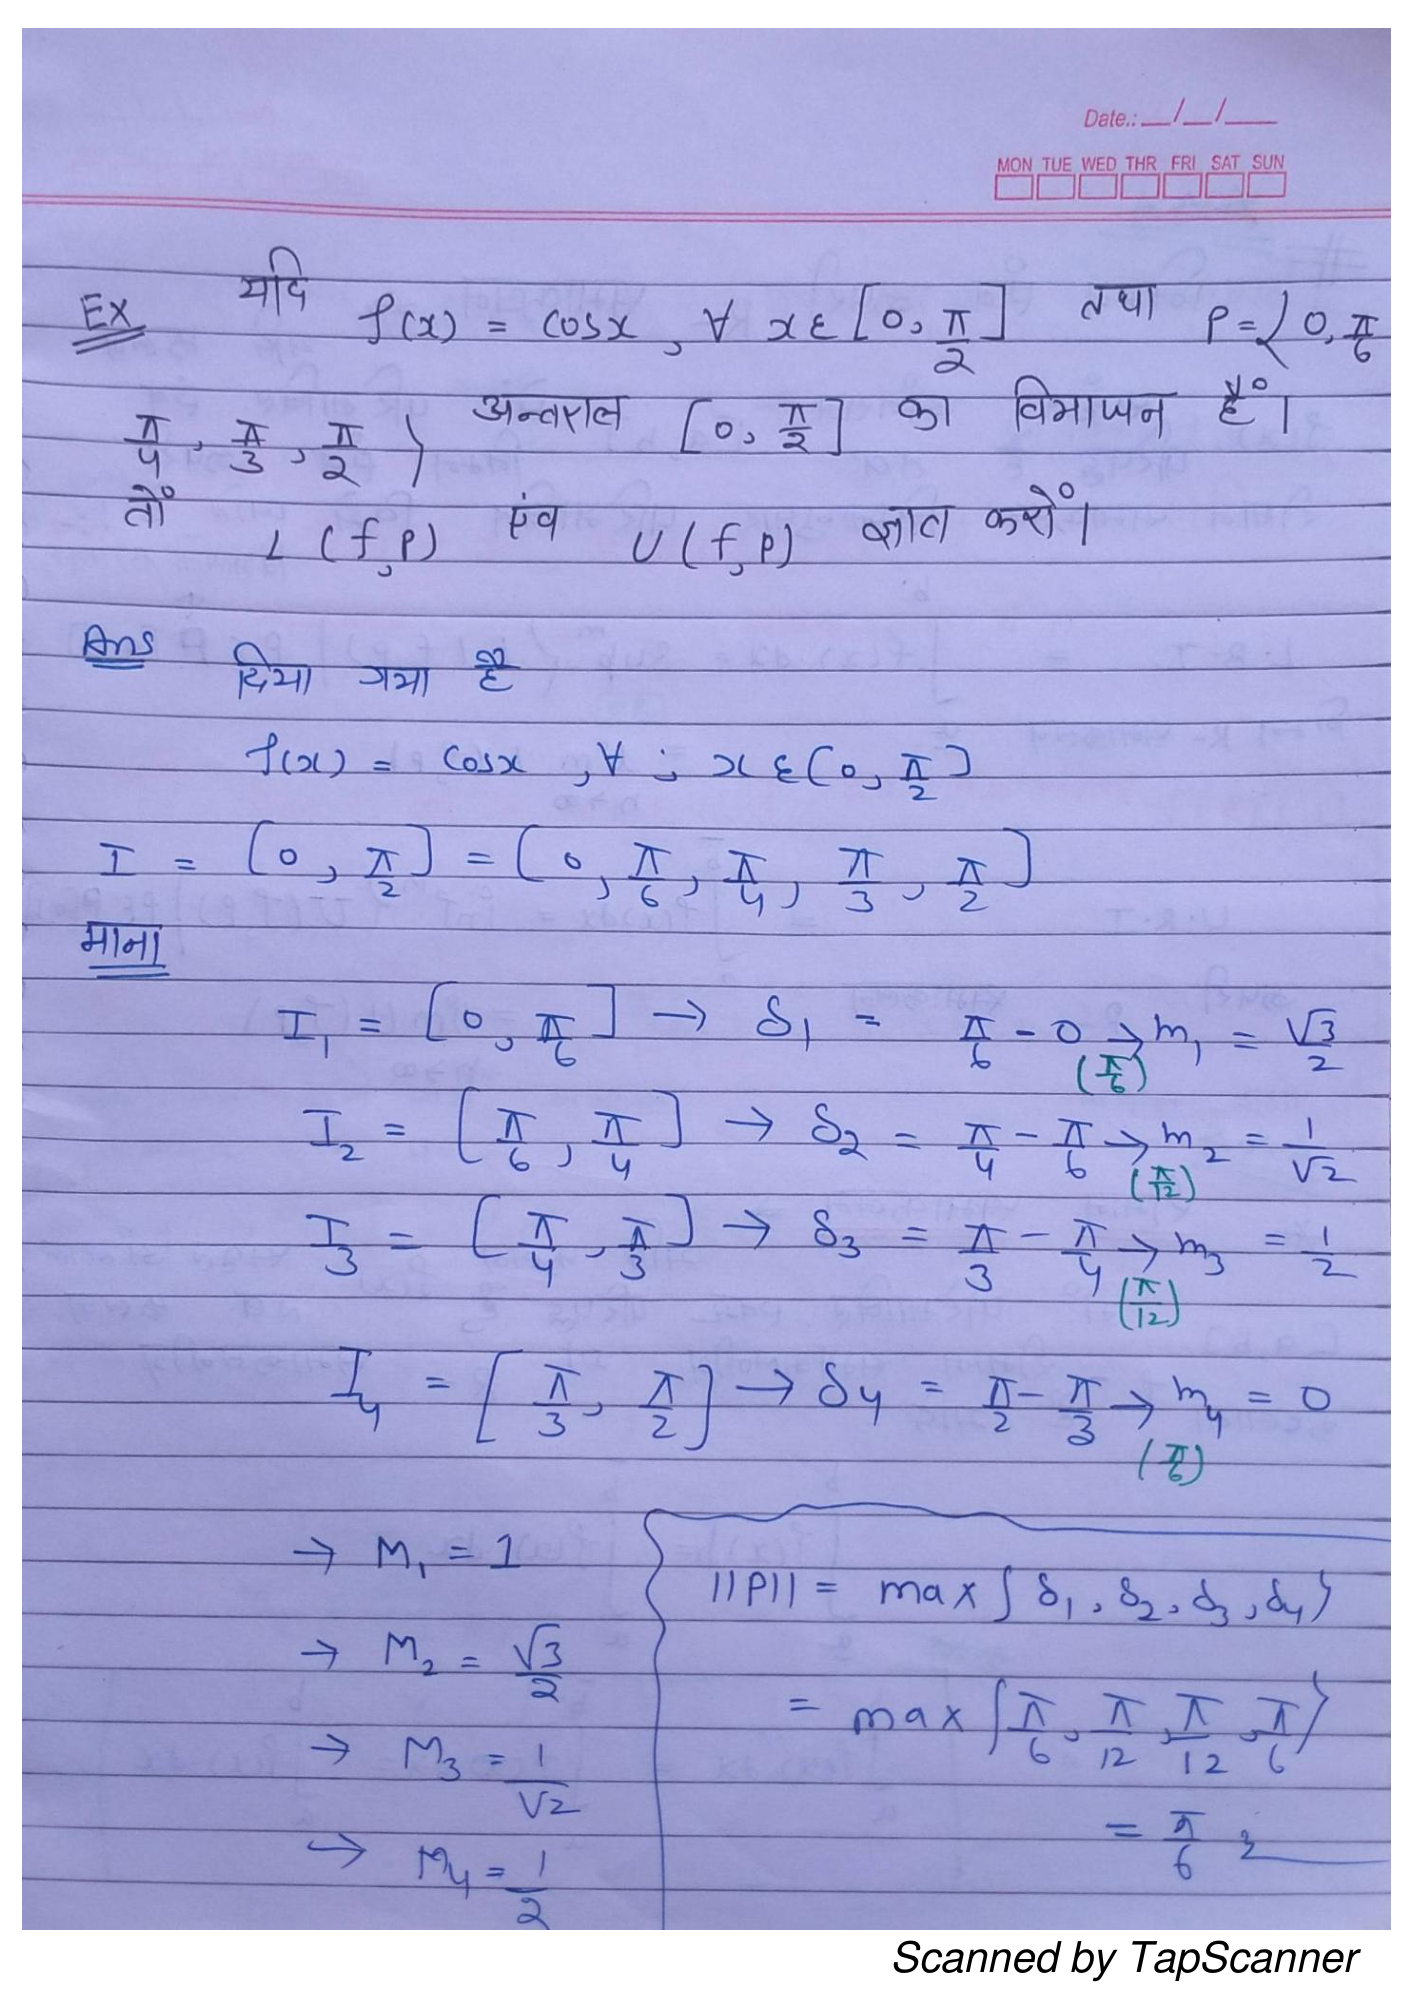 Date.: __/__/__
MON TUE WED THR FRI SAT SUN
Ex यदि f(x) = cosx, ∀ x ε [0, π/2] तथा P = {0, π/6
π/4, π/3, π/2} अन्तराल [0, π/2] का विभाजन हैं।
तों L (f, P) एंव U (f, P) ज्ञात करों।
Ans दिया गया है
f(x) = cosx, ∀ ; x ε (0, π/2]
I = [0, π/2] = [0, π/6, π/4, π/3, π/2]
माना
I₁ = [0, π/6] → δ₁ = π/6 - 0 → m₁ = √3/2
(π/6)
I₂ = [π/6, π/4] → δ₂ = π/4 - π/6 → m₂ = 1/√2
(π/12)
I₃ = [π/4, π/3] → δ₃ = π/3 - π/4 → m₃ = 1/2
(π/12)
I₄ = [π/3, π/2] → δ₄ = π/2 - π/3 → m₄ = 0
(π/6)
→ M₁ = 1
→ M₂ = √3/2
→ M₃ = 1/√2
→ M₄ = 1/2
||P|| = max {δ₁, δ₂, δ₃, δ₄}
= max {π/6, π/12, π/12, π/6}
= π/6
Scanned by TapScanner